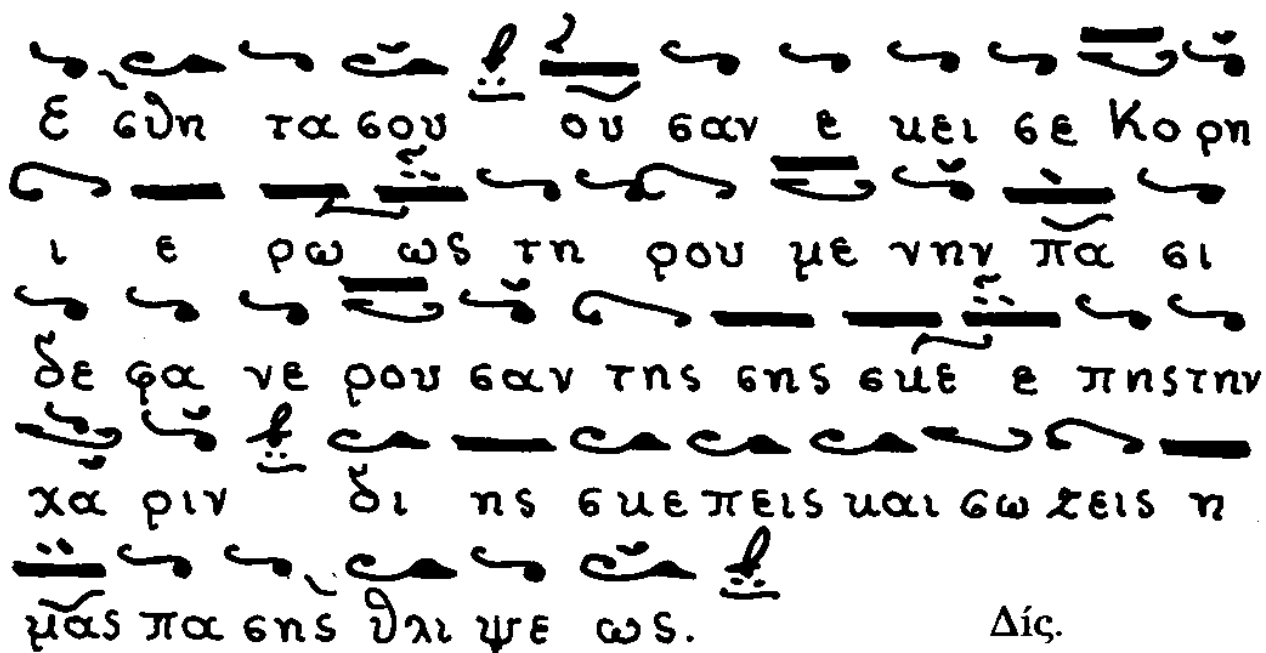 Ε σθη τα σου ου σαν ε κει σε Κο ρη
ι ε ρω ως τη ρου με νην πα σι
δε φα νε ρου σαν της σης σκε ε πης την
χα ριν δι ης σκε πεις και σω ζεις η
μας πα σης θλι ψε ως.
Δίς.